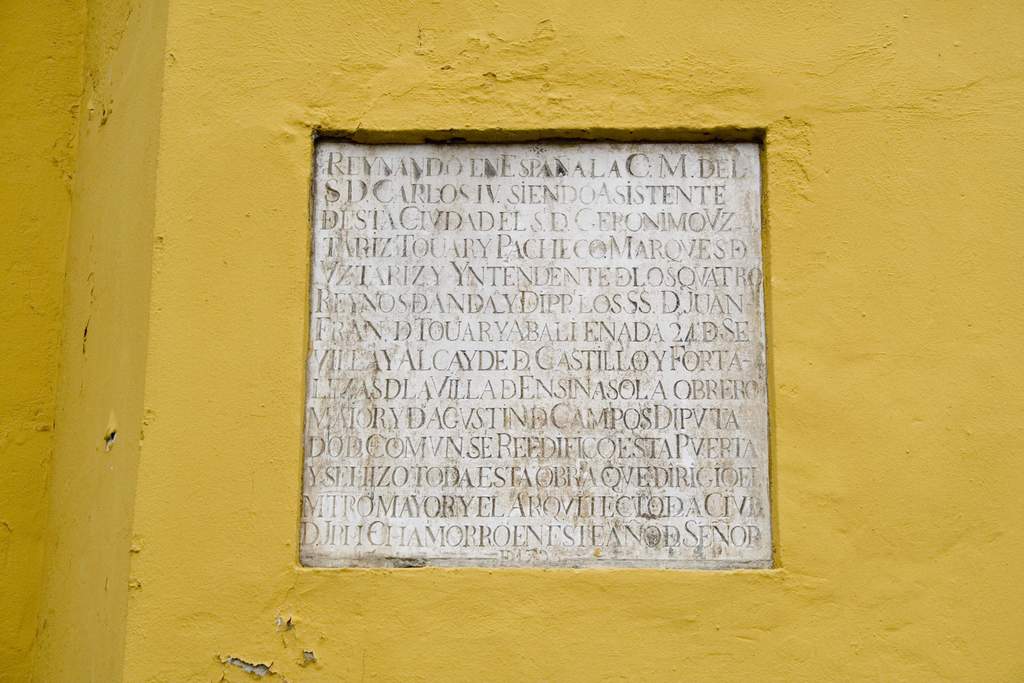 REYNANDO EN ESPAÑA LA C. M. DEL
S. D. CARLOS IV. SIENDO ASISTENTE
DESTA CIVDAD EL S. D. GERONIMO VZ
TARIZ TOUAR Y PACHECO MARQVES D
VZTARIZ Y YNTENDENTE D LOS QVATRO
REYNOS D ANDA Y DIPP. LOS SS. D. JUAN
FRAN. D TOUAR Y ABALIENADA 24 D SE
VILLA Y ALCAYDE D. CASTILLO Y FORTA-
LEZAS D LA VILLA D ENSINASOLA OBRERO
MAIOR Y D AGVSTIN D CAMPOS DIPVTA
DO D. COMVN. SE REEDIFICO ESTA PVERTA
Y SE HIZO TODA ESTA OBRA QVE DIRIGIO EL
MTRO MAYOR Y EL ARQVITECTO D A CIVD
D JPH CHAMORRO EN ESTE AÑO D SEÑOR